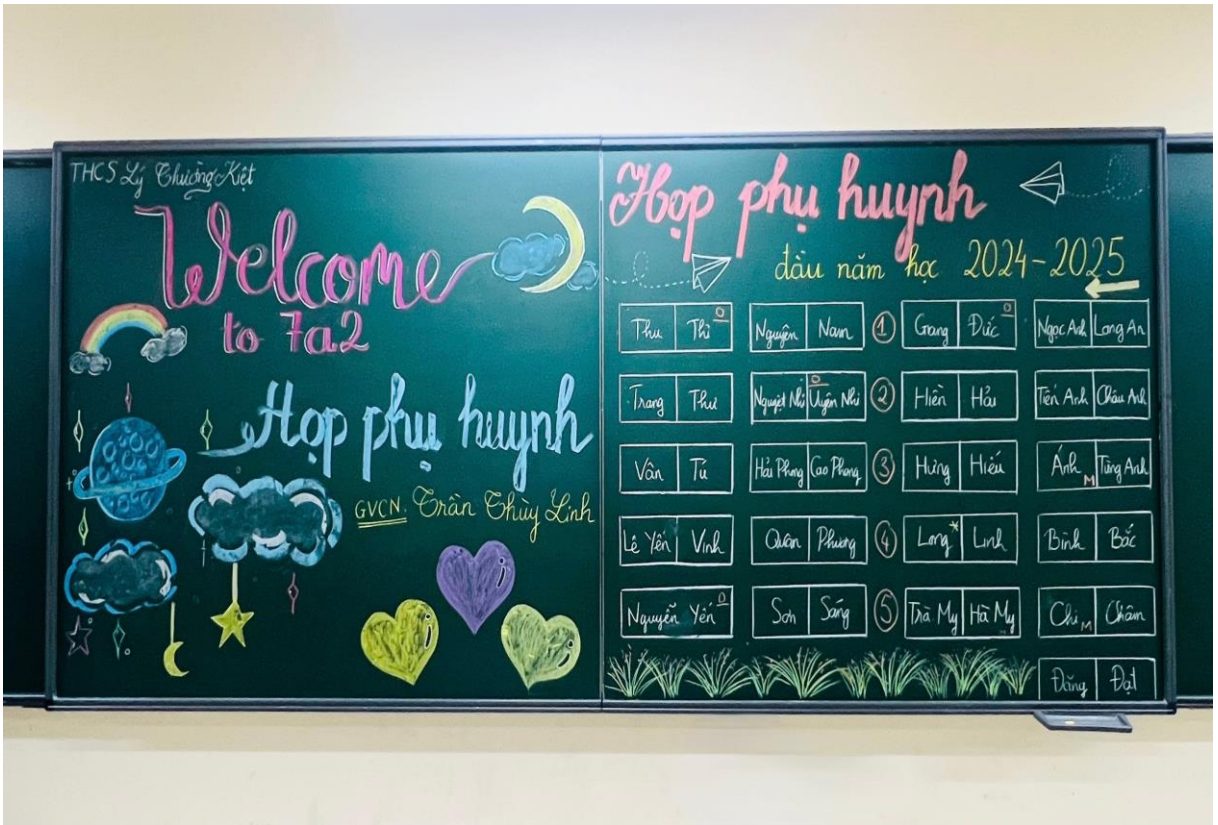 THCS Lý Thường Kiệt
Welcome
to 7a2
Họp phụ huynh
GVCN. Trần Thùy Linh
Họp phụ huynh
đầu năm học 2024-2025
Thu Thi O Nguyên Nam 1 Giang Đức O Ngọc Anh Long An
Trang Thư Nguyệt Nhi Uyên Nhi O 2 Hiền Hải Tiến Anh Châu Anh
Vân Tú Hải Phong Cao Phong 3 Hưng Hiếu Ánh M Tùng Anh
Lê Yến Vinh Quân Phương 4 Long * Linh Bình Bắc
Nguyễn Yến O Sơn Sáng 5 Trà My Hà My Chi M Châm
Đăng Đạt